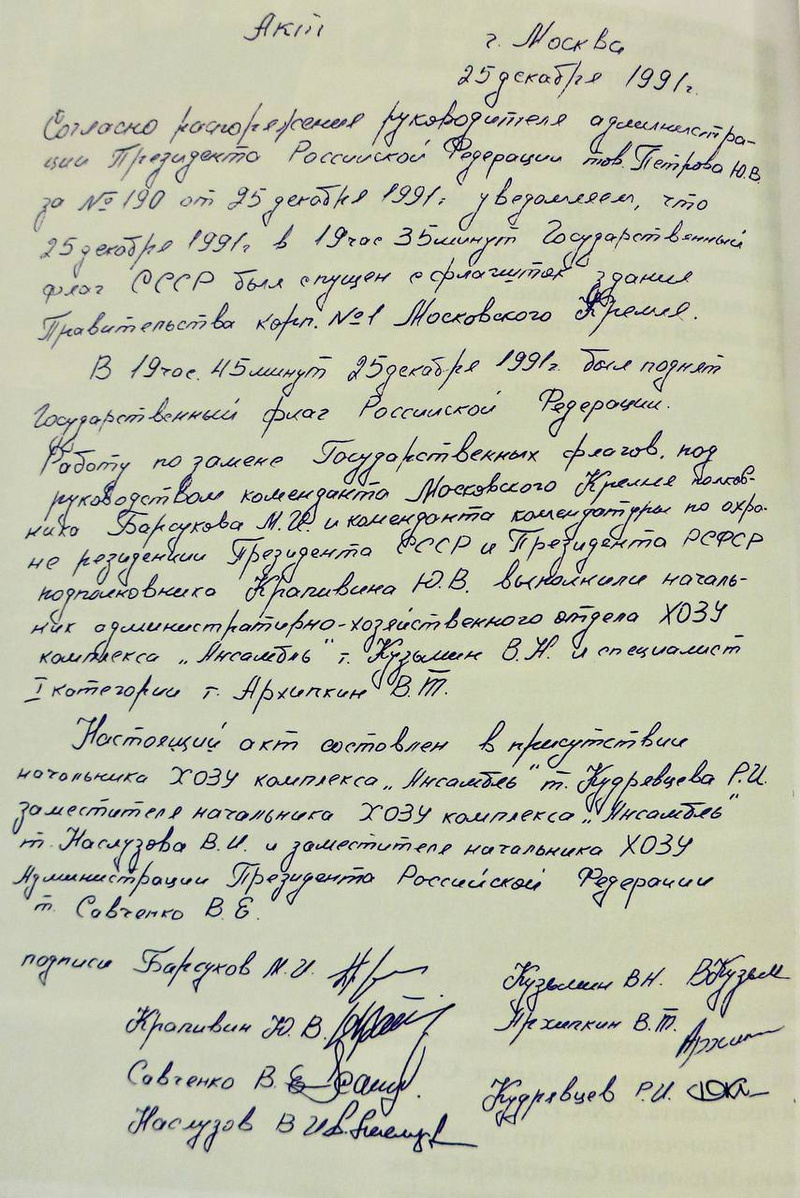 Акт
г. Москва
25 декабря 1991г.
Согласно распоряжения руководителя администра-
ции Президента Российской Федерации тов. Петрова Ю.В.
за №190 от 25 декабря 1991г. уведомляем, что
25 декабря 1991г в 19 час 35 минут Государственный
флаг СССР был спущен с флагшток здания
Правительства корп. №1 Московского Кремля.
В 19 час. 45 минут 25 декабря 1991г. был поднят
Государственный флаг Российской Федерации.
Работу по замене Государственных флагов, под
руководством коменданта Московского Кремля полков-
ника Барсукова М.И. и коменданта комендатуры по охра-
не резиденции Президента СССР и Президента РСФСР
подполковника Крапивина Ю.В. выполнили началь-
ник административно-хозяйственного отдела ХОЗУ
комплекса „Ансамбль" т. Кузьмин В.Н. и специалист
I категории т. Архипкин В.Т.
Настоящий акт составлен в присутствии
начальника ХОЗУ комплекса „Ансамбль" т. Кудрявцева Р.И.
заместителя начальника ХОЗУ комплекса „Ансамбль"
т. Наслузова В.И. и заместителя начальника ХОЗУ
Администрации Президента Российской Федерации
т. Савченко В.Е.
подписи Барсуков М.И.
Кузьмин В.Н. ВКузьм
Крапивин Ю.В.
Архипкин В.Т. Архип
Савченко В.Е.
Кудрявцев Р.И.
Наслузов В И